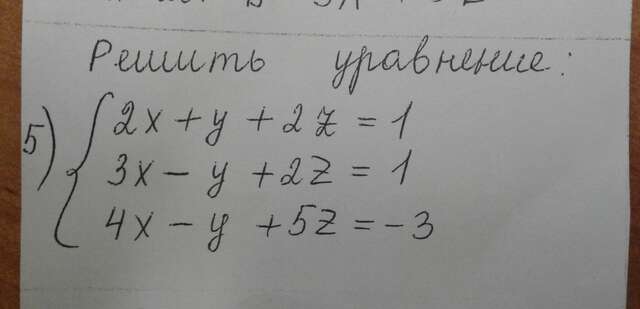 Решить уравнение:
5) { 2x + y + 2z = 1
3x - y + 2z = 1
4x - y + 5z = -3